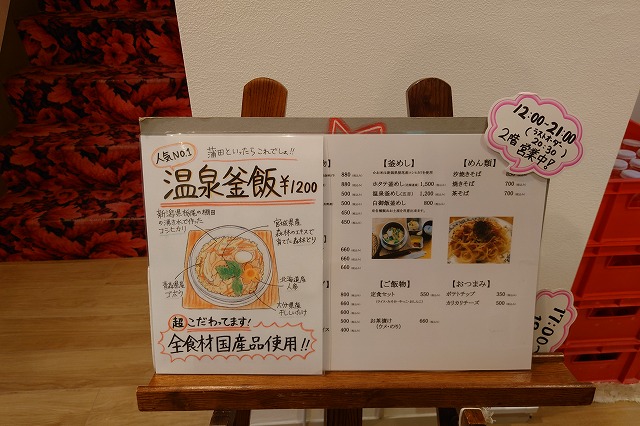 人気NO.1
蒲田といったらこれでしょ!!
温泉釜飯¥1200
新潟県板尾の棚田
の湧き水で作った
コシヒカリ
宮城県産
森林のエキスで
育てた森林どり
青森県産
ゴボウ
北海道産
人参
大分県産
干ししいたけ
超こだわってます!
全食材国産品使用!!
物】
880
880
500
450
450
660
660
660
800
600
500
400
【釜めし】
ホタテ釜めし 1,500
温泉釜めし 1,200
白御飯釜めし 800
【ご飯物】
定食セット 550
お茶漬け 660
(ウメ・のり)
【めん類】
汐焼きそば 700
焼きそば 700
茶そば 700
【おつまみ】
ポテトチップ 350
カリカリチーズ 500
12:00-21:00
(ラストオーダー
20:30)
2階営業中!
17:00